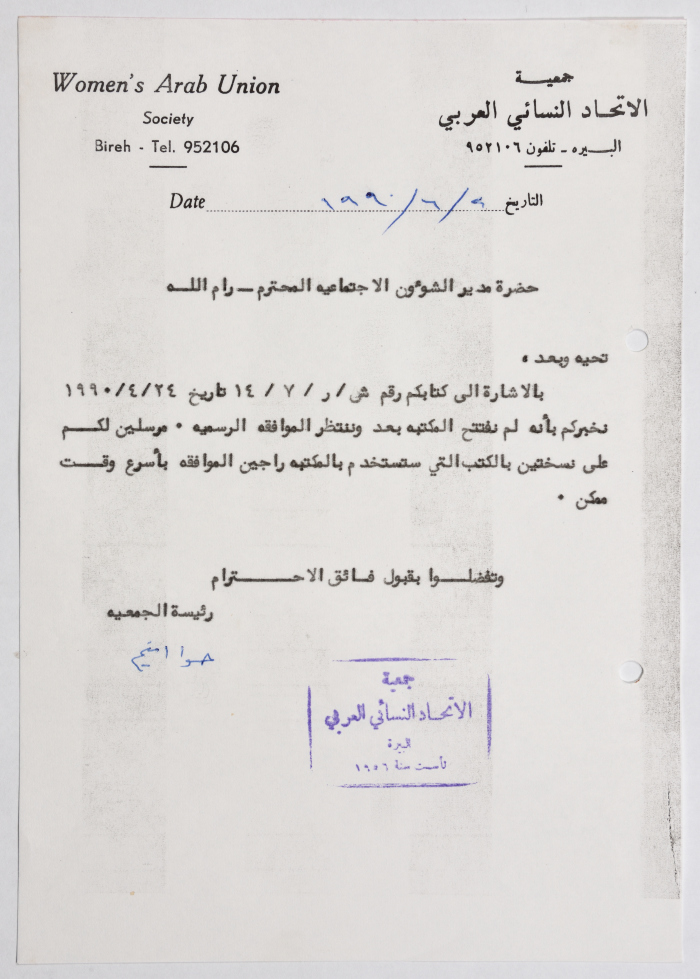 Women's Arab Union
Society
Bireh - Tel. 952106
جمعيـــة
الاتحـاد النسائي العربي
البـــيره - تلفون ٩٥٢١٠٦
Date ١٩٩٠/٦/٩ التاريخ
حضرة مدير الشوءون الاجتماعيه المحترم ــ رام اللـــه
تحيه وبعد ،
بالاشارة الى كتابكم رقم ش/ ر / ٧ / ١٤ تاريخ ١٩٩٠/٤/٢٤
نخبركم بأنه لم نفتتح المكتبه بعد وننتظر الموافقه الرسميه ٠ مرسلين لكـــم
على نسختين بالكتب التي ستستخدم بالمكتبه راجين الموافقه بأسرع وقـــت
ممكن ٠
وتفضلـــوا بقبول فــائق الاحـــــترام
رئيسة الجمعيه
حوا
جمعية
الاتحـاد النسائي العربي
البيرة
تأسست سنة ١٩٥٦